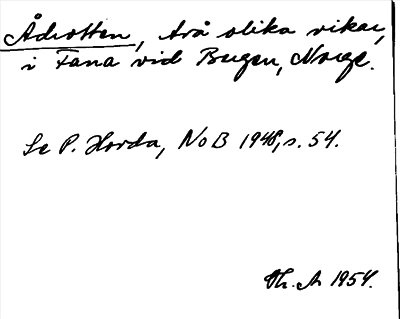 Ådrotten, två olika vikar,
i Fana vid Bergen, Norge.
Se P. Hovda, NoB 1948, s. 54.
Th. A 1954.